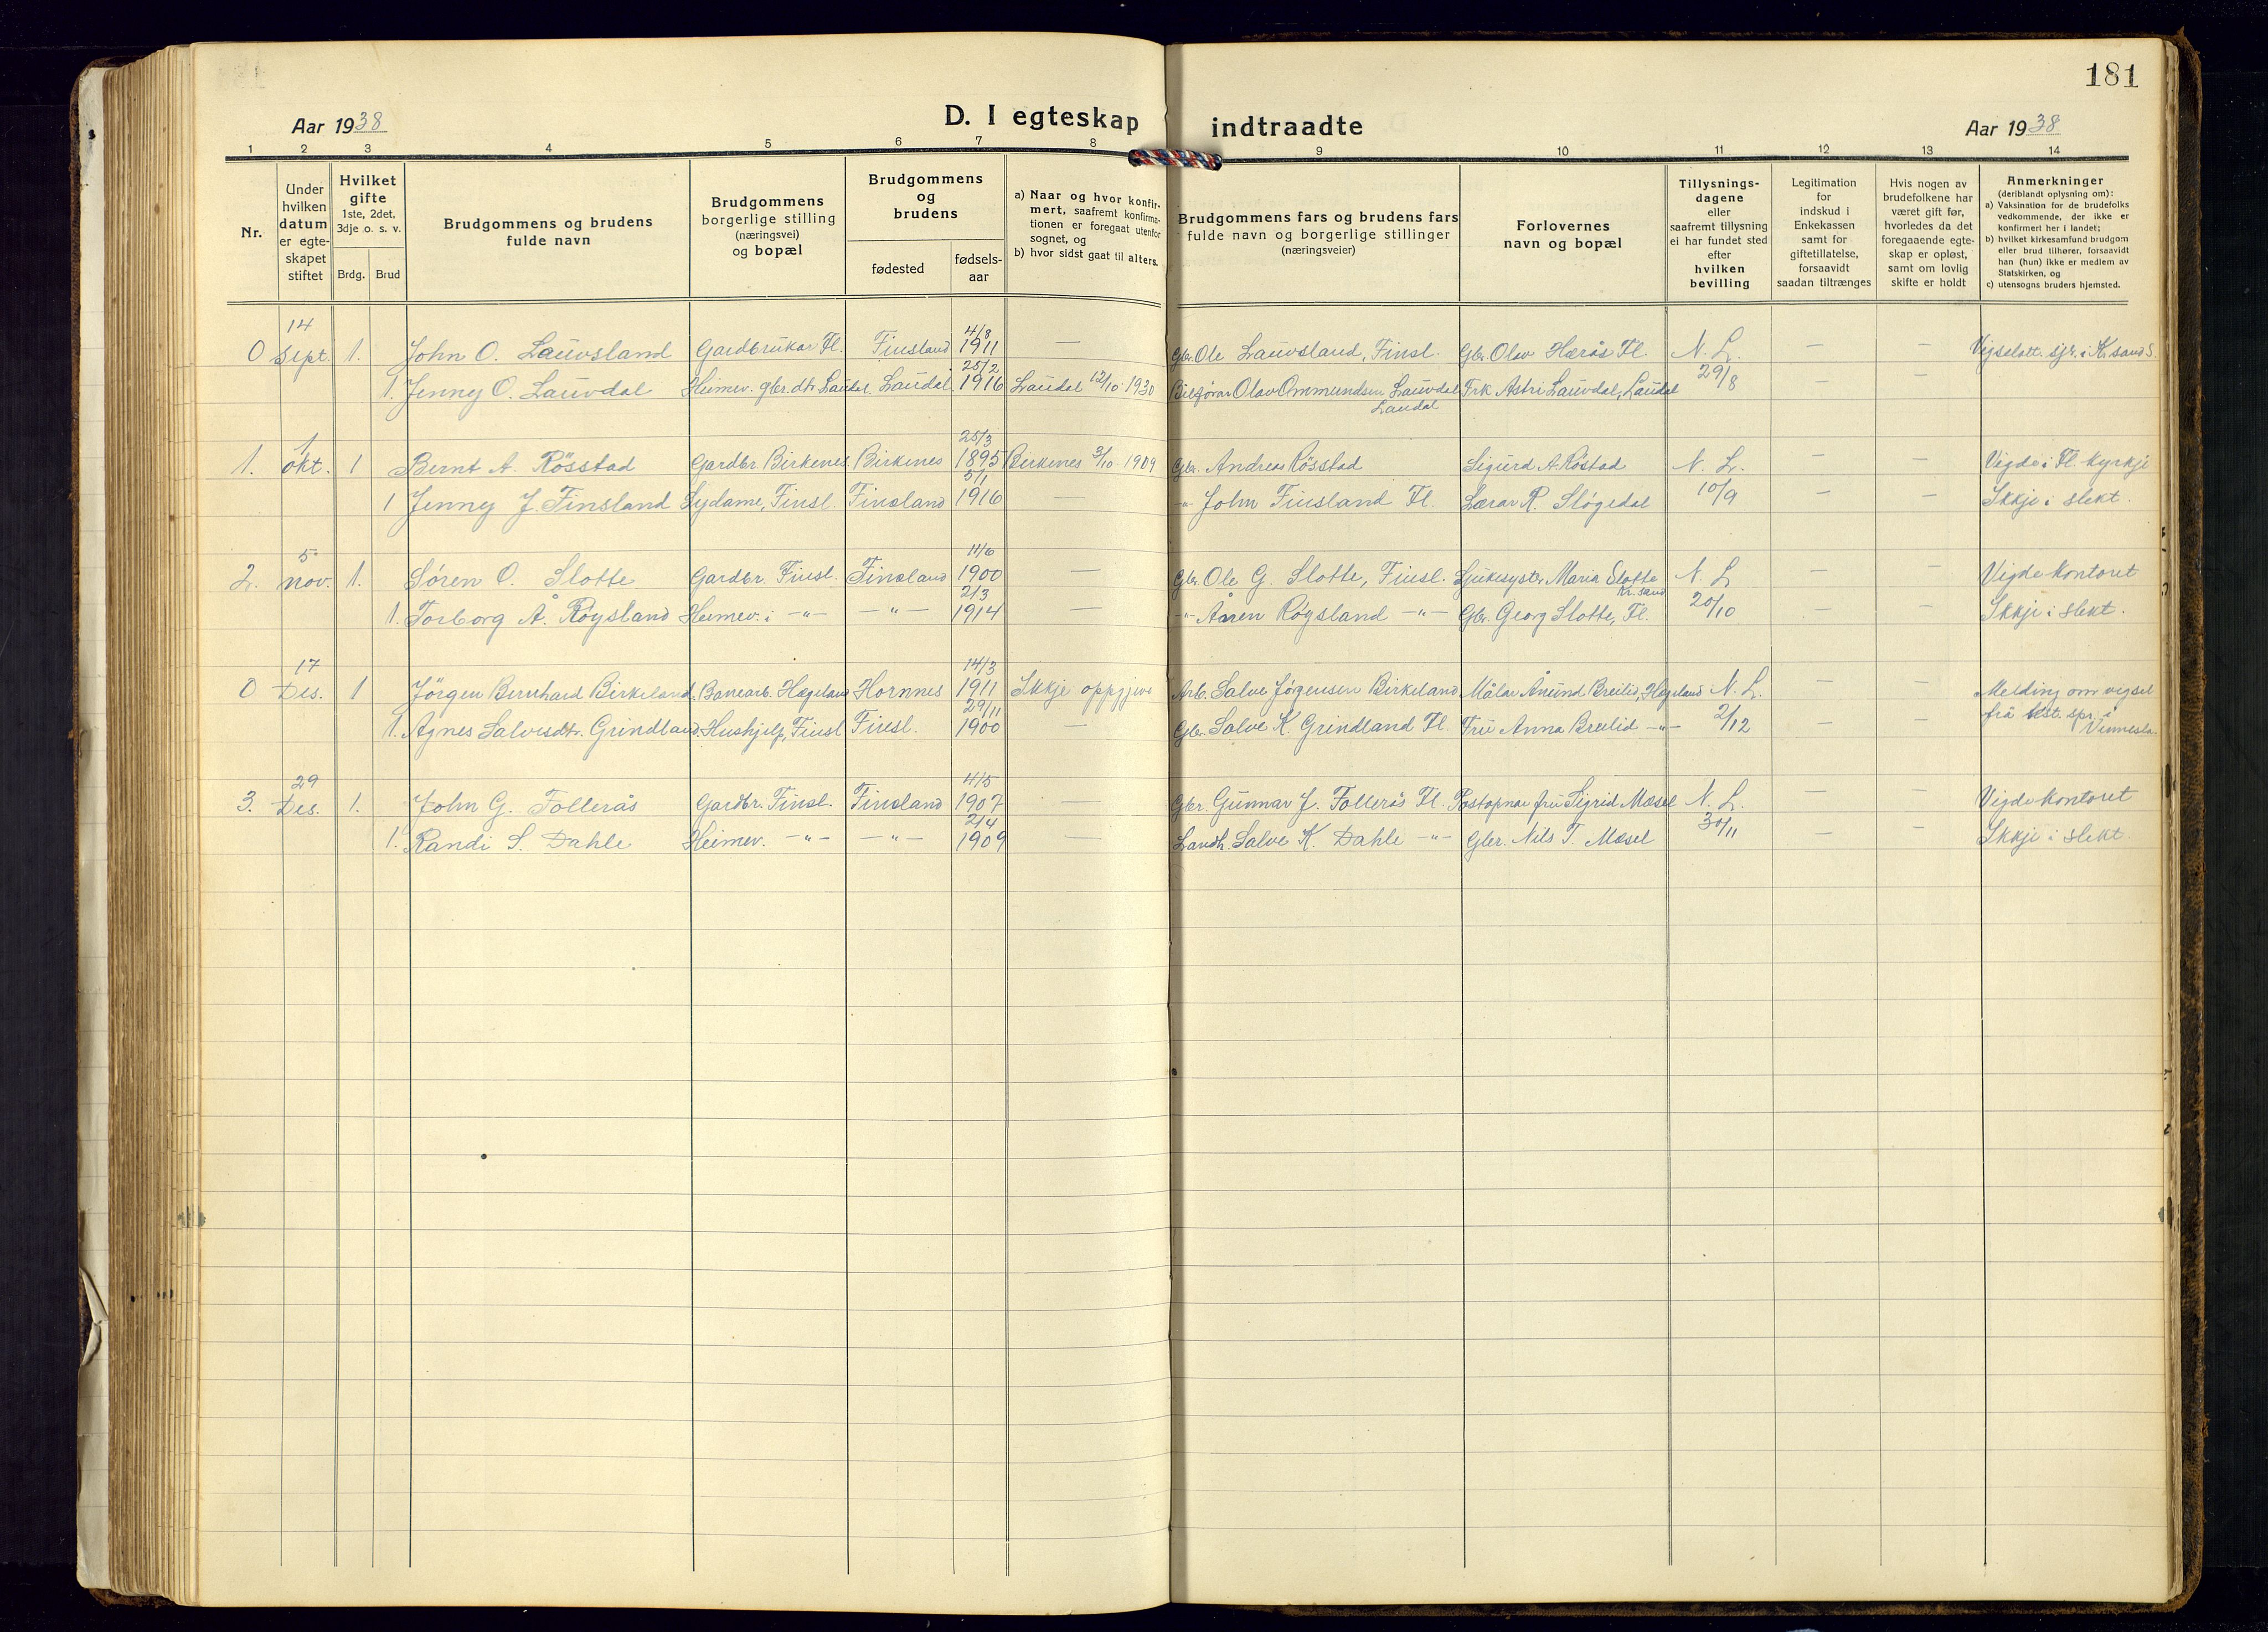 181
D. I egteskap indtraadte
Aar 1938
Aar 1938
1 2 3 4 5 6 7 8 9 10 11 12 13 14
Nr.
Under hvilken datum er egte-skapet stiftet
Hvilket gifte 1ste, 2det, 3dje o. s. v.
Brdg. Brud
Brudgommens og brudens fulde navn
Brudgommens borgerlige stilling (næringsvei) og bopæl
Brudgommens og brudens
fødested
fødsels-aar
a) Naar og hvor konfir-mert, saafremt konfirma-tionen er foregaat utenfor sognet, og
b) hvor sidst gaat til alters.
Brudgommens fars og brudens fars fulde navn og borgerlige stillinger (næringsveier)
Forlovernes navn og bopæl
Tillysnings-dagene eller saafremt tillysning ei har fundet sted efter hvilken bevilling
Legitimation for indskud i Enkekassen samt for giftetillatelse, forsaavidt saadan tiltrænges
Hvis nogen av brudefolkene har været gift før, hvorledes da det foregaaende egte-skap er opløst, samt om lovlig skifte er holdt
Anmerkninger (deriblandt oplysning om):
a) Vaksination for de brudefolks vedkommende, der ikke er konfirmert her i landet;
b) hvilket kirkesamfund brudgom eller brud tilhører, forsaavidt han (hun) ikke er medlem av Statskirken, og
c) utensogns bruders hjemsted.
14 4/8
0 Sept. 1. John O. Lauvsland Gardbrukar Fl. Finsland 1911 — Gbr. Ole Lauvsland, Finsl. Gbr. Olav Hærås Fl. N. L. — — Vigselatt. sjr. i Kr.sand S.
25/2
1. Jenny O. Lauvdal Heimev. gbr.dtr Laudal. Laudal 1916 Laudal 12/10 1930 Bilførar Olav Ommundsen Lauvdal Frk Astri Lauvdal, Laudal 29/8 — —
Laudal
1 25/3
1. okt. 1 Bernt A. Rösstad Gardbr. Birkenes. Birkenes 1895 Birkenes 3/10 1909 Gbr. Andreas Rösstad Sigurd A. Röstad N. L. — — Vigde i Fl. kyrkje
5/1
1 Jenny J. Finsland Sydame, Finsl. Finsland 1916 — -"- John Finsland Fl. Lærar R. Sløgedal 10/9 — — Ikkje i slekt.
5 11/6
2. nov. 1. Søren O. Slotte Gardbr. Finsl. Finsland 1900 — Gbr. Ole G. Slotte, Finsl. Sjukesyster Maria Slotte N. L. — — Vigde kontoret
Kr.sand
2/3
1. Torborg Å. Röysland Heimev. i -"- -"- 1914 — -"- Ånen Röysland -"- Gbr. Georg Slotte, Fl. 20/10 — — Ikkje i slekt.
17 14/3
0 Des. 1 Jörgen Bernhard Birkeland Banearb. Hægeland Hornnes 1911 Ikkje oppgjeve Arb. Salve Jørgensen Birkeland Målar Ånund Breilid, Hægeland N. L. — — Melding om vigsel
29/11
1. Agnes Salvesdtr. Grindland Hushjelp, Finsl Finsl. 1900 — Gbr. Salve K. Grindland Fl. Fru Anna Breilid -"- 2/12 — — frå
Vennesla.
29 4/5
3. Des. 1. John G. Follerås Gardbr. Finsl. Finsland 1907 — Gbr. Gunnar J. Follerås Fl. Postopnar fru Sigrid Mæsel N. L. — — Vigde kontoret
2/4
1. Randi S. Dahle Heimev. -"- -"- 1909 — Landh. Salve K. Dahle -"- Gbr. Nils T. Mæsel 30/11 — — Ikkje i slekt.